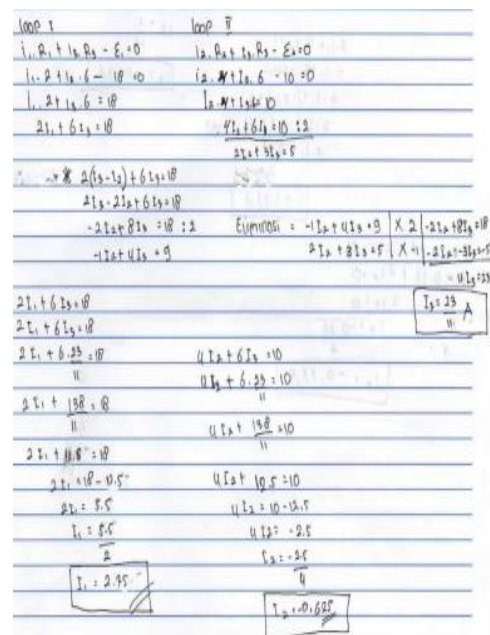 loop I
i₁.R₁ + I₃.R₃ - E₁=0
i₁.2 + I₃.6 - 18 =0
I₁.2 + I₃.6 = 18
2I₁ + 6I₃ = 18
loop II
I₂.R₂ + I₃.R₃ - E₂=0
i₂.4 + I₃.6 - 10 =0
I₂.4 + I₃.6= 10
4I₂ + 6I₃ = 10 :2
2I₂ + 3I₃ = 5
2(I₃-I₂) + 6I₃=18
2I₃ - 2I₂ + 6I₃=18
-2I₂ + 8I₃ = 18 : 2
-1I₂ + 4I₃ = 9
Eliminasi = -1I₂ + 4I₃ = 9 | X 2 | -2I₂ + 8I₃ = 18
2I₂ + 3I₃ = 5 | X -1 | -2I₂ + -3I₃ = -5
11I₃ = 23
I₃ = 23/11 A
2I₁ + 6I₃ = 18
2I₁ + 6I₃ = 18
2I₁ + 6.23/11 = 18
2I₁ + 138/11 = 18
2I₁ + 12.5 = 18
2I₁ = 18 - 12.5
2I₁ = 5.5
I₁ = 5.5/2
I₁ = 2.75
4I₂ + 6I₃ = 10
4I₂ + 6.23/11 = 10
4I₂ + 138/11 = 10
4I₂ + 12.5 = 10
4I₂ = 10 - 12.5
4I₂ = -2.5
I₂ = -2.5/4
I₂ = -0.625